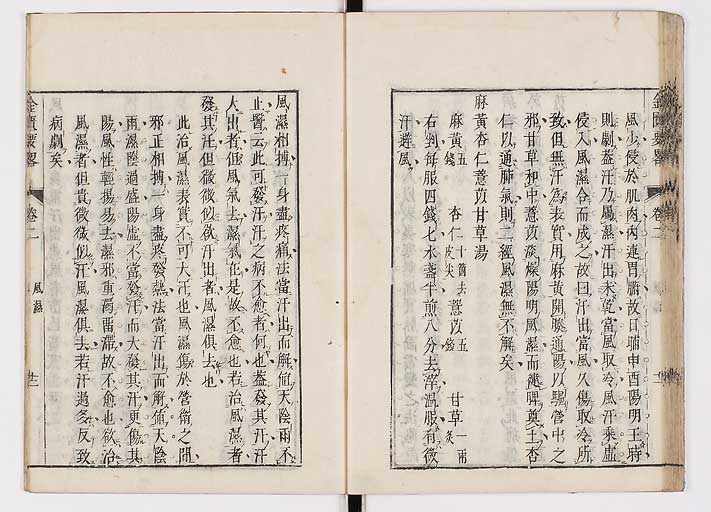 風少侵於肌肉內連胃脯故日晡申酉陽明王時
則劇蓋汗乃屬濕汗出未乾當風取冷風汗乘虛
侵入風濕合而成之故曰汗出當風久傷取冷所
致但無汗為表實用麻黃開腠通陽以驅營中之
邪甘草和中薏苡淡燥陽明風濕而健脾奠土杏
仁以通肺氣則二經風濕無不解矣
麻黃杏仁薏苡甘草湯
麻黃五錢 杏仁十箇去皮尖 薏苡五錢 甘草一兩炙
右剉每服四錢七水盞半煎八分去滓溫服有微
汗避風
金匱要畧 卷二
風濕相搏一身盡疼痛法當汗出而解值天陰雨不
止醫云此可發汗汗之病不愈者何也蓋發其汗汗
大出者但風氣去濕氣在是故不愈也若治風濕者
發其汗但微微似欲汗出者風濕俱去也
此治風濕表實不可大汗也風濕傷於營衛之間
邪正相搏一身盡疼發熱法當汗出而解值天陰
雨濕陰過盛陽虛不當發汗而大發其汗更傷其
陽風性輕揚易去濕邪重濁留滯故不愈也欲治
風濕者但貴微微似汗風濕俱去若汗過多反致
病劇矣
金匱要畧 卷二 風濕